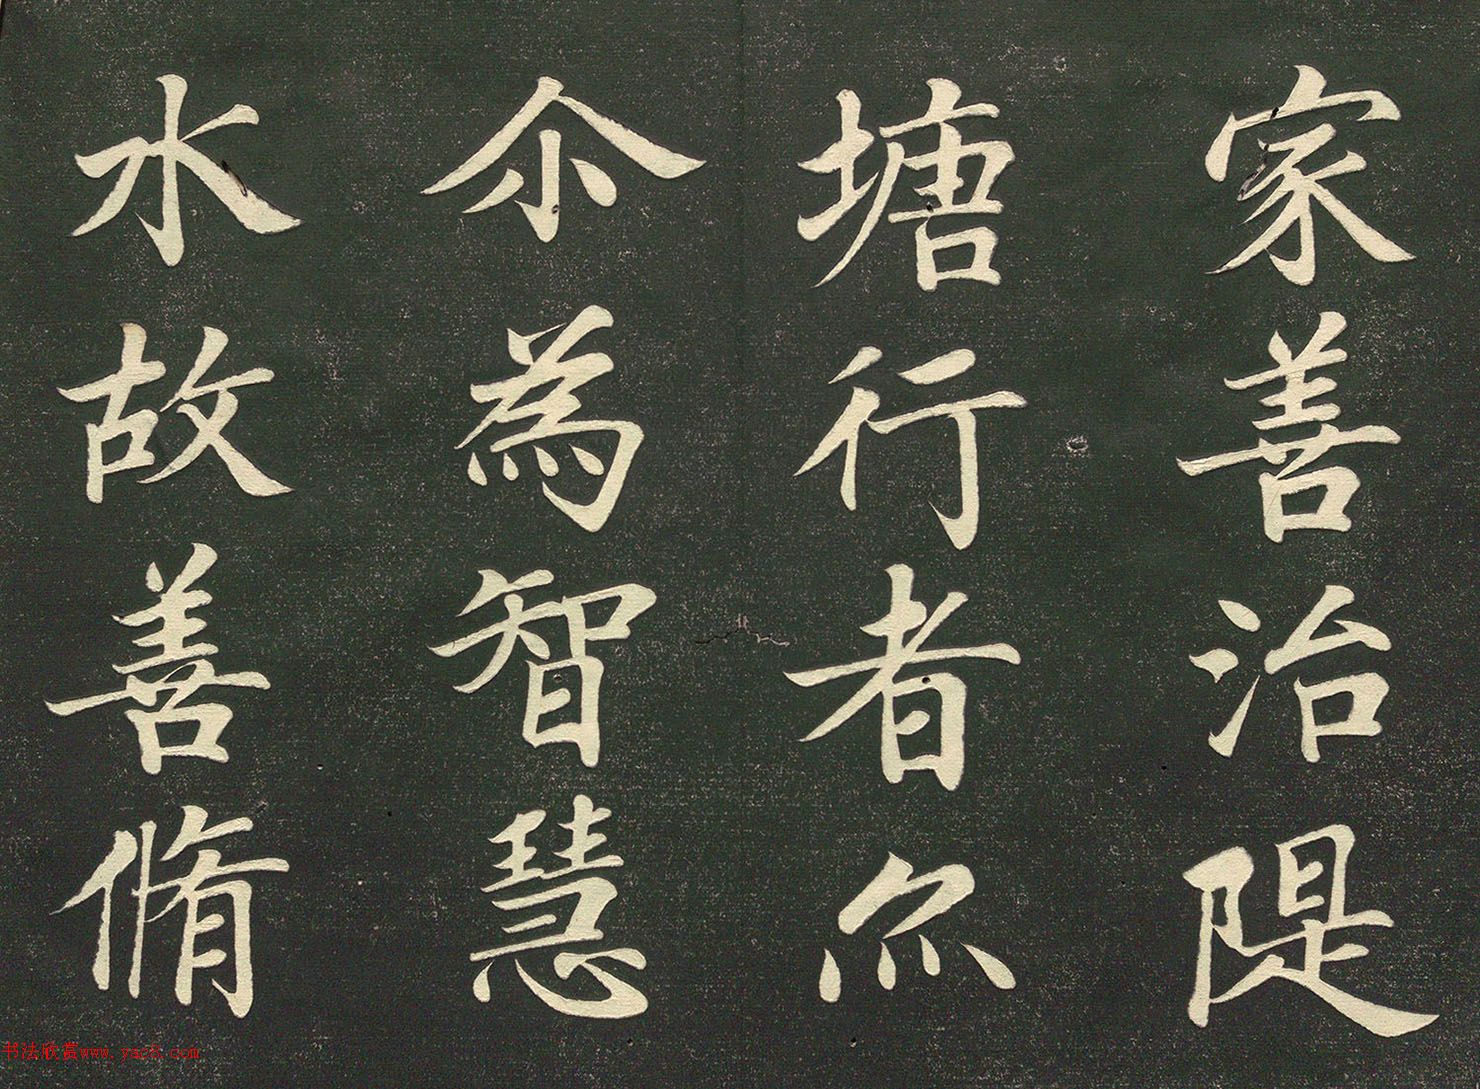 家善治隄
塘行者尒
尒為智慧
水故善脩
书法欣赏www.yac8.com